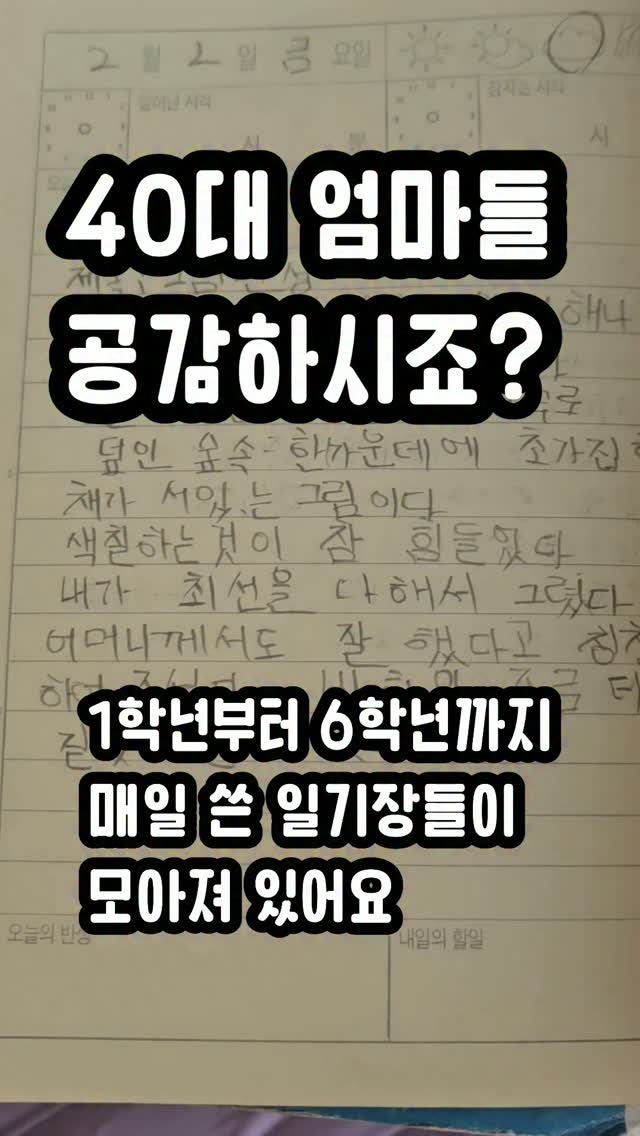 2 월 2 일 금 요일
일어난 시각
잠자는 시각
시 분
시
40대 엄마들
공감하시죠?
해나
덮인 숲속 한가운데에 초가집
채가 서있는 그림이다
색칠하는것이 참 힘들었다
내가 최선을 다해서 그렸다
어머니께서도 잘 했다고 칭찬
1학년부터 6학년까지
매일 쓴 일기장들이
모아져 있어요
오늘의 반성
내일의 할일